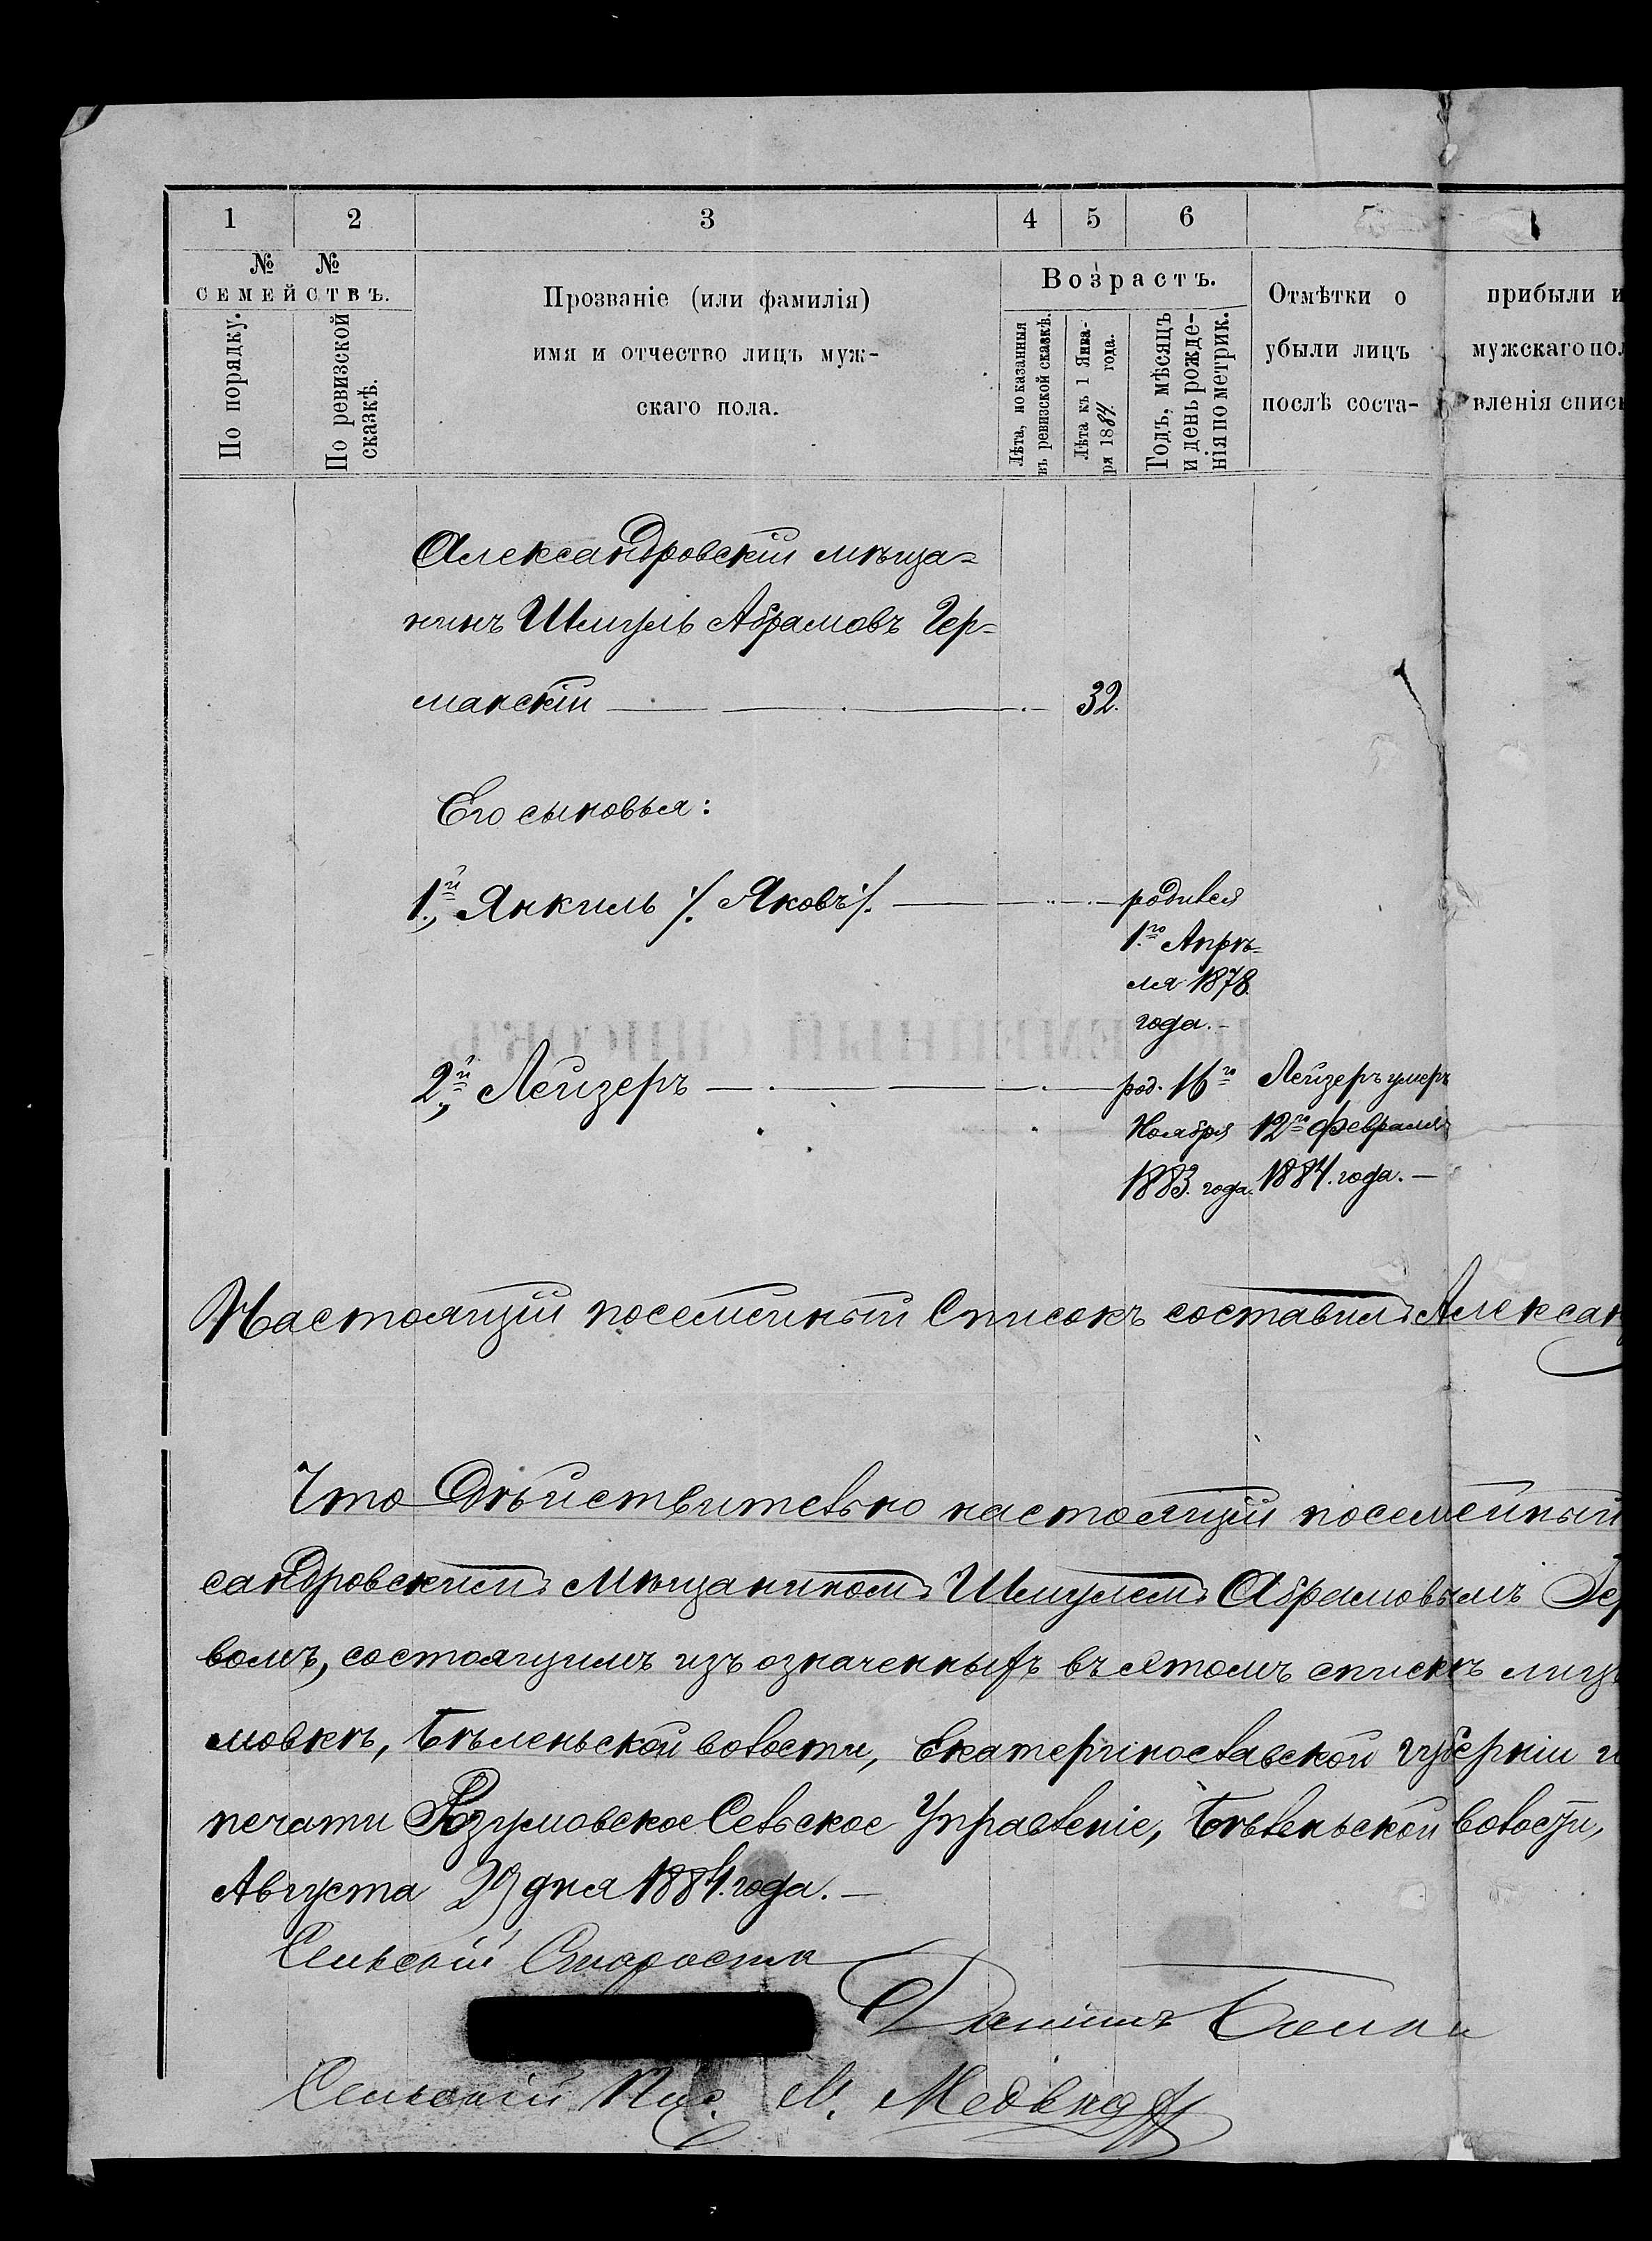 1 2 3 4 5 6
№ № семействъ.
По порядку.
По ревизской сказкѣ.
Прозваніе (или фамилія)
имя и отчество лицъ муж-
скаго пола.
Возрастъ.
Лѣта, показанныя въ ревизской сказкѣ.
Лѣта къ 1 Янва-
ря 1884 года.
Годъ, мѣсяцъ
и день рожде-
нія по метрик.
Отмѣтки о прибыли и
убыли лицъ мужскаго пол
послѣ соста- вленія списк
Александровскій мѣща-
нинъ Шмуль Абрамовъ Гер-
манскій 32.
Его сыновья:
1.й, Янкиль /. Яковъ/. родився
1.го Апрѣ-
ля 1878
года.
2.й, Лейзеръ род. 16го Лейзеръ умеръ
Ноября 12го февраля
1883. года. 1884. года.
Настоящій посемейный Списокъ составилъ Алексан
Что Дѣйствительно настоящій посемейный
сандровскимъ Мѣщаниномъ Шмулемъ Абрамовымъ Гер
вомъ, состоящимъ изъ означенныхъ въ этомъ спискѣ лицъ
мовкѣ, Бѣленьской волости, Екатеринославской губерніи и
печати Розумовское Сельское Управленіе, Бѣленьской волости,
Августа 29 дня 1884. года.
Сельскій Староста
Данилъ
Сельскій Пис. М. Медвед